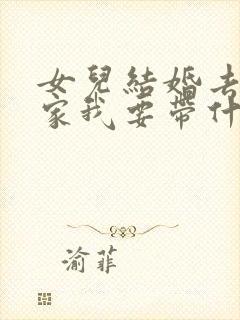 女兒結婚去
家我要帶什
渝菲